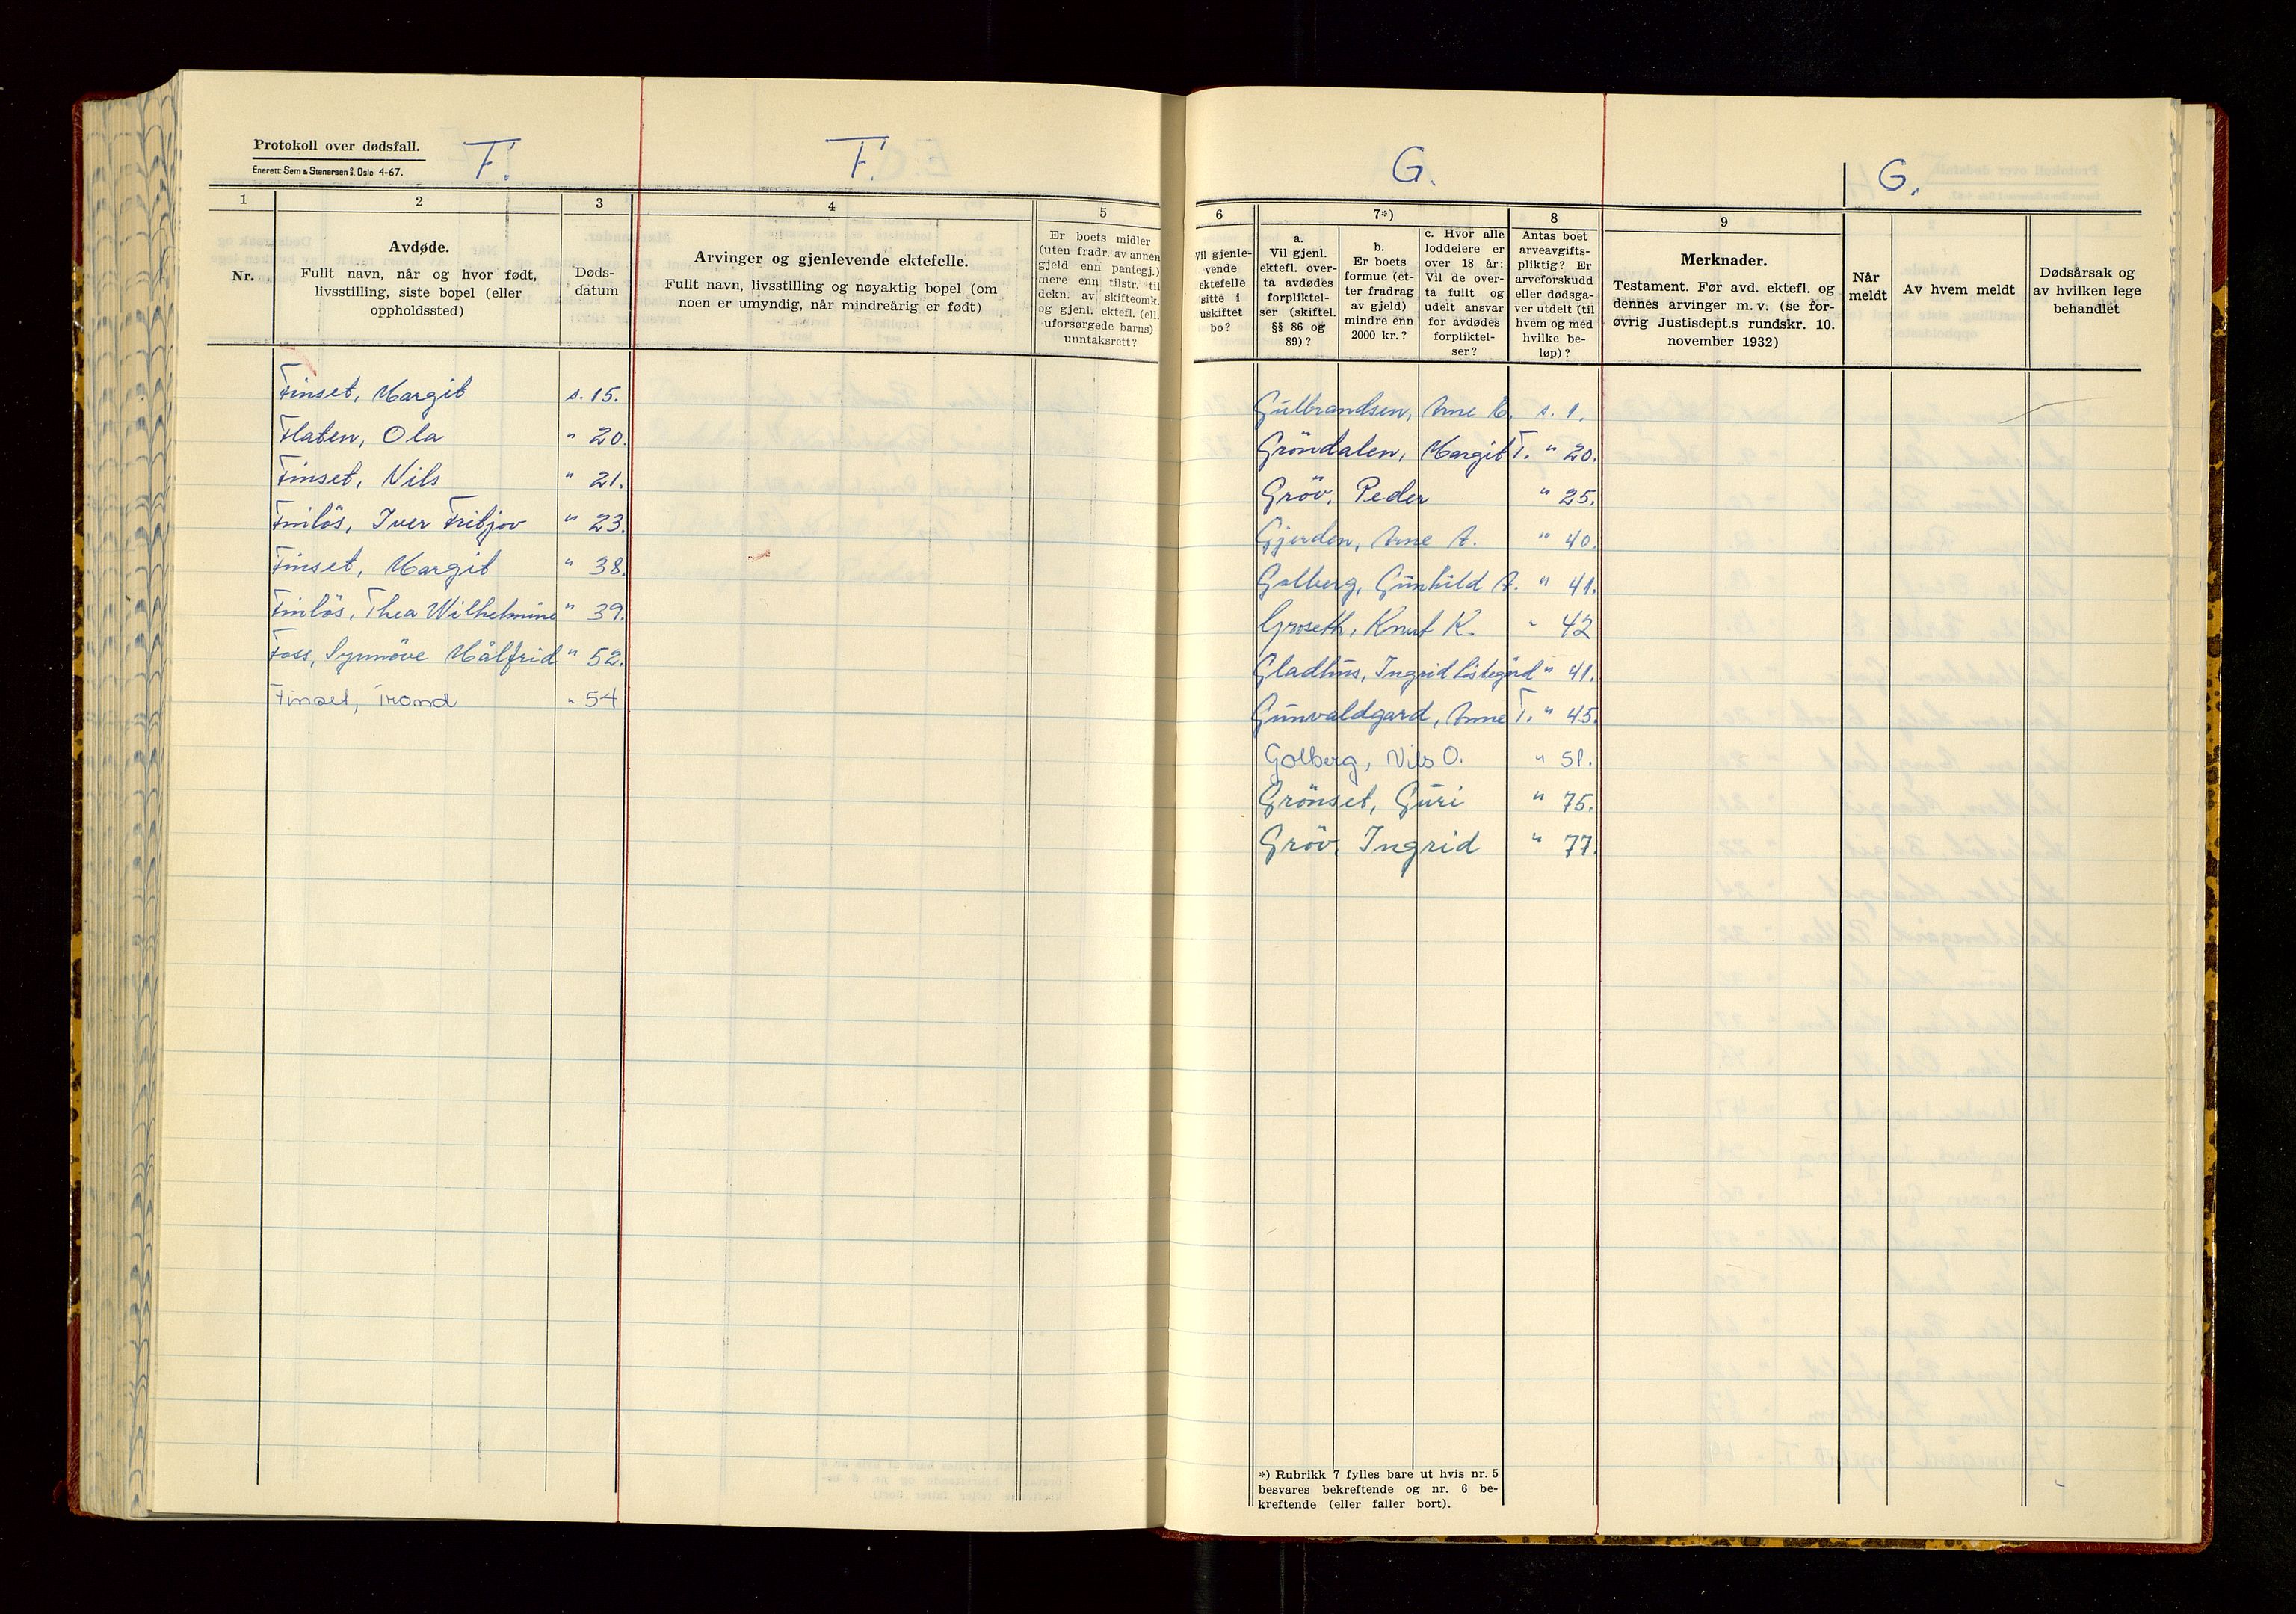 Protokoll over dødsfall.
Enerett: Sem & Stenersen A/S Oslo 4-67.
F. F.
1 2 3 4 5
Nr.
Avdøde.
Fullt navn, når og hvor født,
livsstilling, siste bopel (eller
oppholdssted)
Døds-
datum
Arvinger og gjenlevende ektefelle.
Fullt navn, livsstilling og nøyaktig bopel (om
noen er umyndig, når mindreårig er født)
Er boets midler
(uten fradr. av annen
gjeld enn pantegj.)
mere enn tilstr. til
dekn. av skifteomk.
og gjenl. ektefl. (ell.
uforsørgede barns)
unntaksrett?
Finset, Margit s. 15.
Flaten, Ola " 20.
Finset, Nils " 21.
Finlös, Iver Fritjov " 23.
Finset, Margit " 38.
Finlös, Thea Wilhelmine " 39.
Foss, Synnöve Målfrid " 52.
Finset, Trond " 54
G. G.
6 7*) 8 9
Vil gjenle-
vende
ektefelle
sitte i
uskiftet
bo?
a.
Vil gjenl.
ektefl. over-
ta avdødes
forpliktel-
ser (skiftel.
§§ 86 og
89)?
b.
Er boets
formue (et-
ter fradrag
av gjeld)
mindre enn
2000 kr.?
c. Hvor alle
loddeiere er
over 18 år:
Vil de over-
ta fullt og
udelt ansvar
for avdødes
forpliktel-
ser?
Antas boet
arveavgifts-
pliktig? Er
arveforskudd
eller dødsga-
ver utdelt (til
hvem og med
hvilke be-
løp)?
Merknader.
Testament. Før avd. ektefl. og
dennes arvinger m. v. (se for-
øvrig Justisdept.s rundskr. 10.
november 1932)
Når
meldt
Av hvem meldt
Dødsårsak og
av hvilken lege
behandlet
Gulbrandsen, Arne K. s. 1.
Gröndalen, Margit T. " 20.
Gröv, Peder " 25.
Gjerden, Arne A. " 40.
Golberg, Gunhild A. " 41.
Groseth, Knut K. " 42
Gladhus, Ingrid " 41.
Gunvaldgard, Anne T. " 45.
Golberg, Nils O. " 51.
Grönset, Guri " 75.
Gröv, Ingrid " 77.
*) Rubrikk 7 fylles bare ut hvis nr. 5
besvares bekreftende og nr. 6 be-
kreftende (eller faller bort).